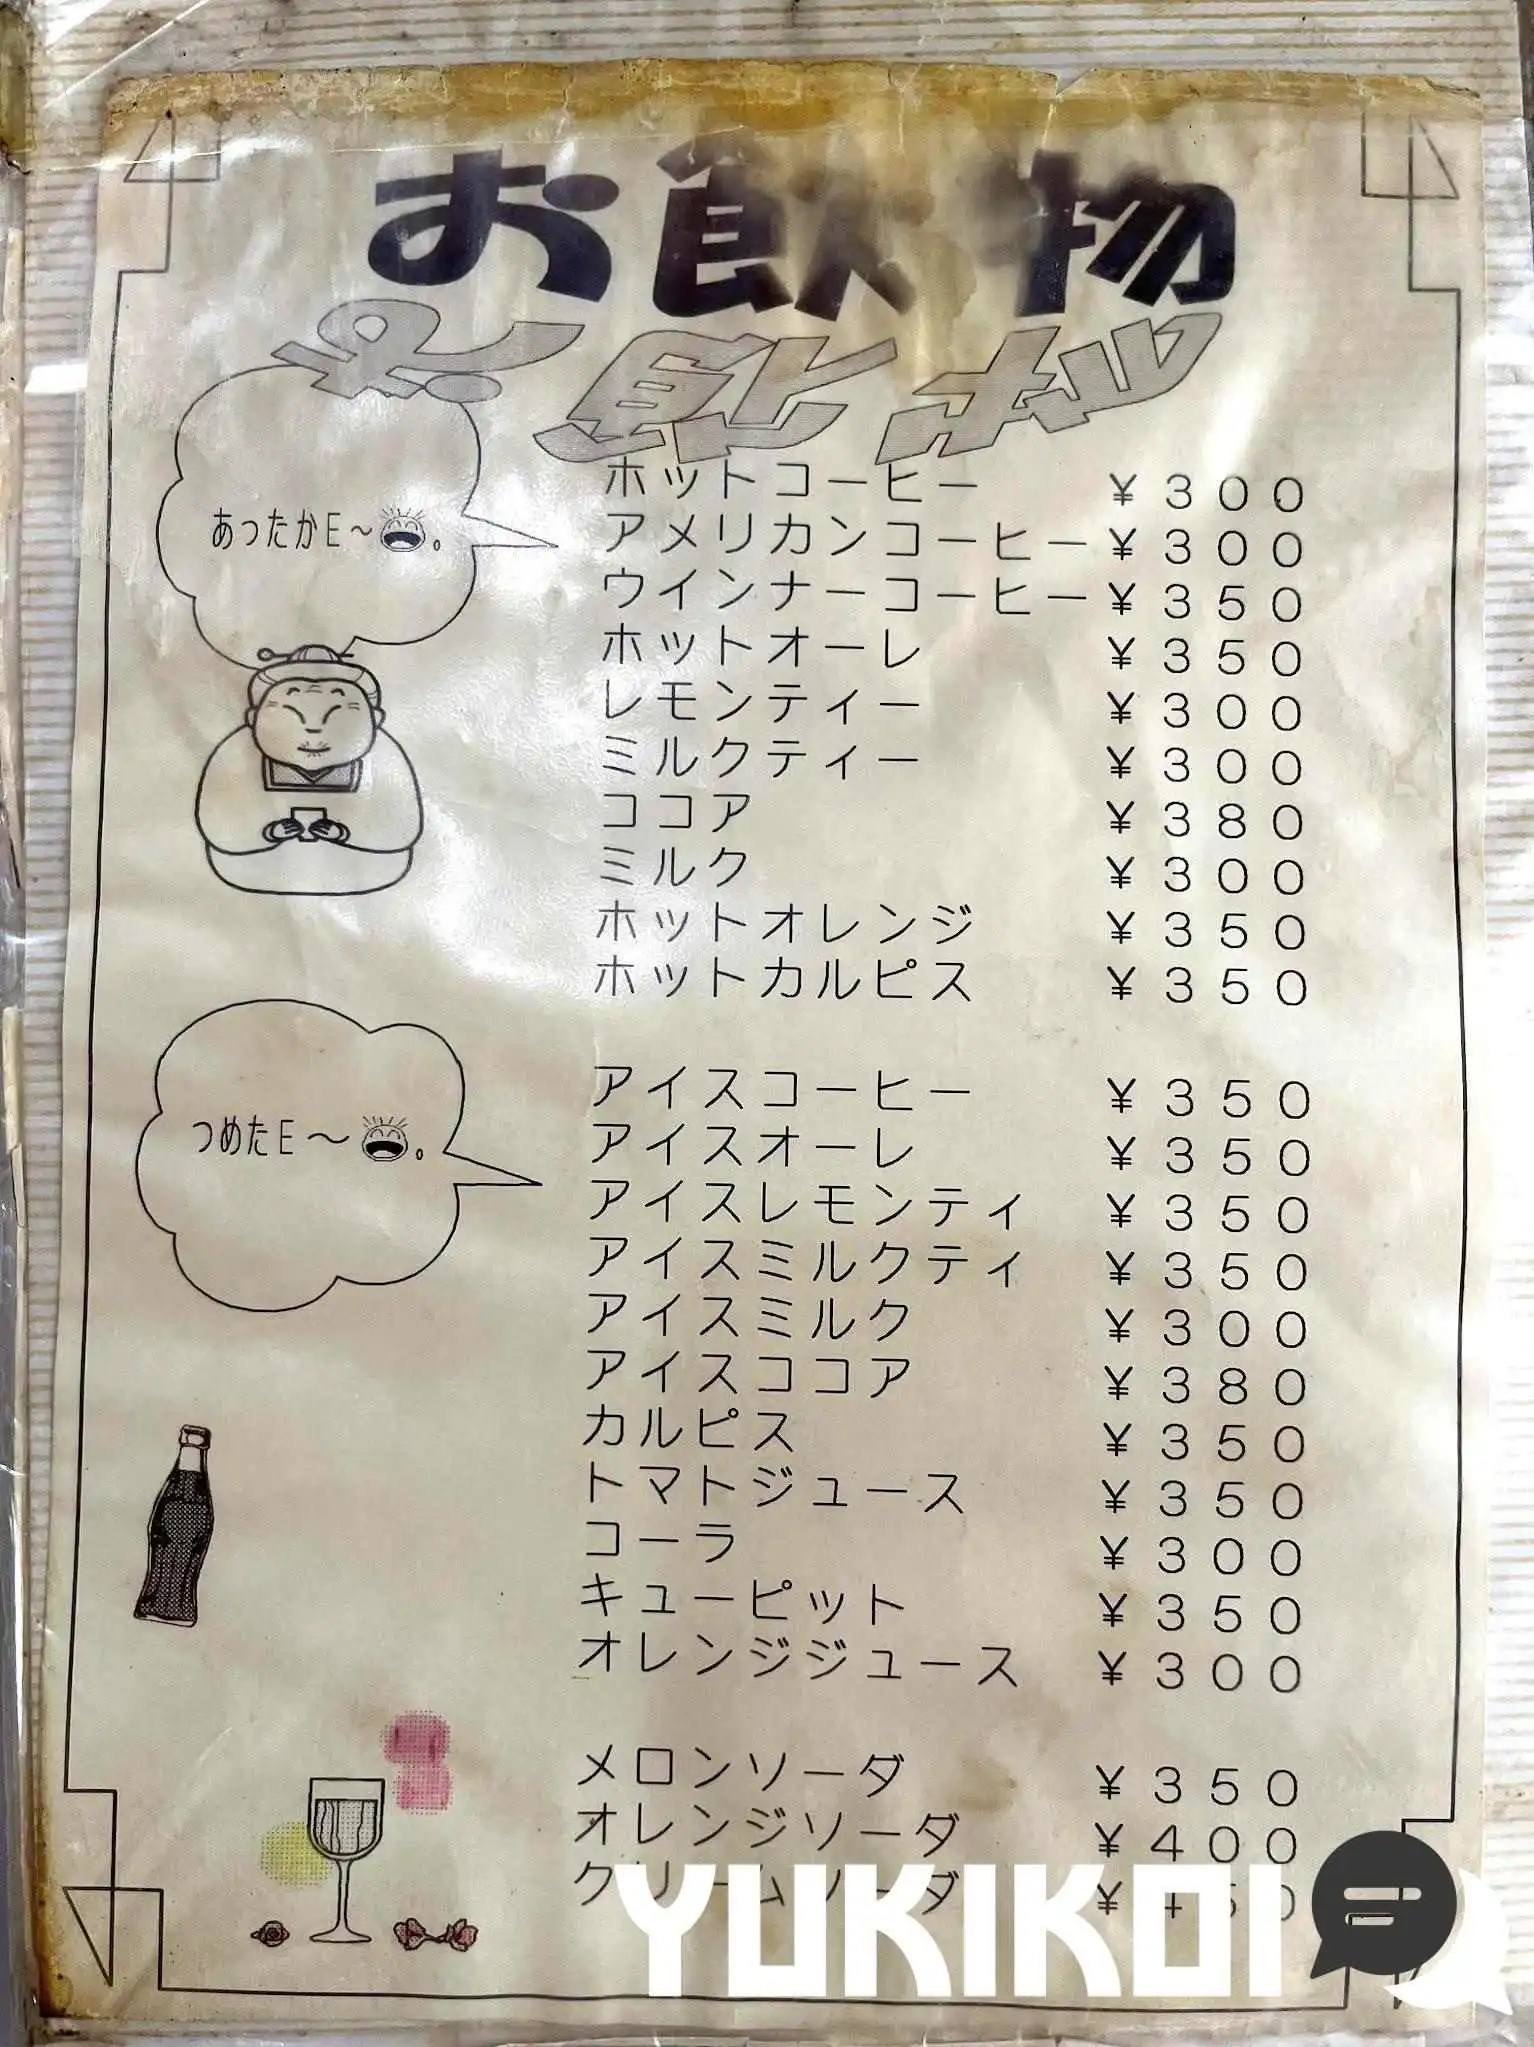 お飲物
あったかE～。
ホットコーヒー ￥300
アメリカンコーヒー ￥300
ウインナーコーヒー ￥350
ホットオーレ ￥350
レモンティー ￥300
ミルクティー ￥300
ココア ￥380
ミルク ￥300
ホットオレンジ ￥350
ホットカルピス ￥350
つめたE～。
アイスコーヒー ￥350
アイスオーレ ￥350
アイスレモンティ ￥350
アイスミルクティ ￥350
アイスミルク ￥300
アイスココア ￥380
カルピス ￥350
トマトジュース ￥350
コーラ ￥300
キューピット ￥350
オレンジジュース ￥300
メロンソーダ ￥350
オレンジソーダ ￥400
クリームソーダ
YUKIKOI